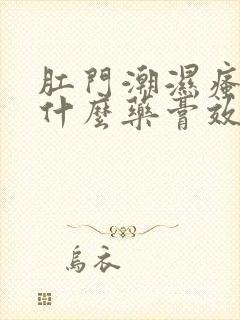 肛門潮濕瘙
什麼藥膏效
烏衣